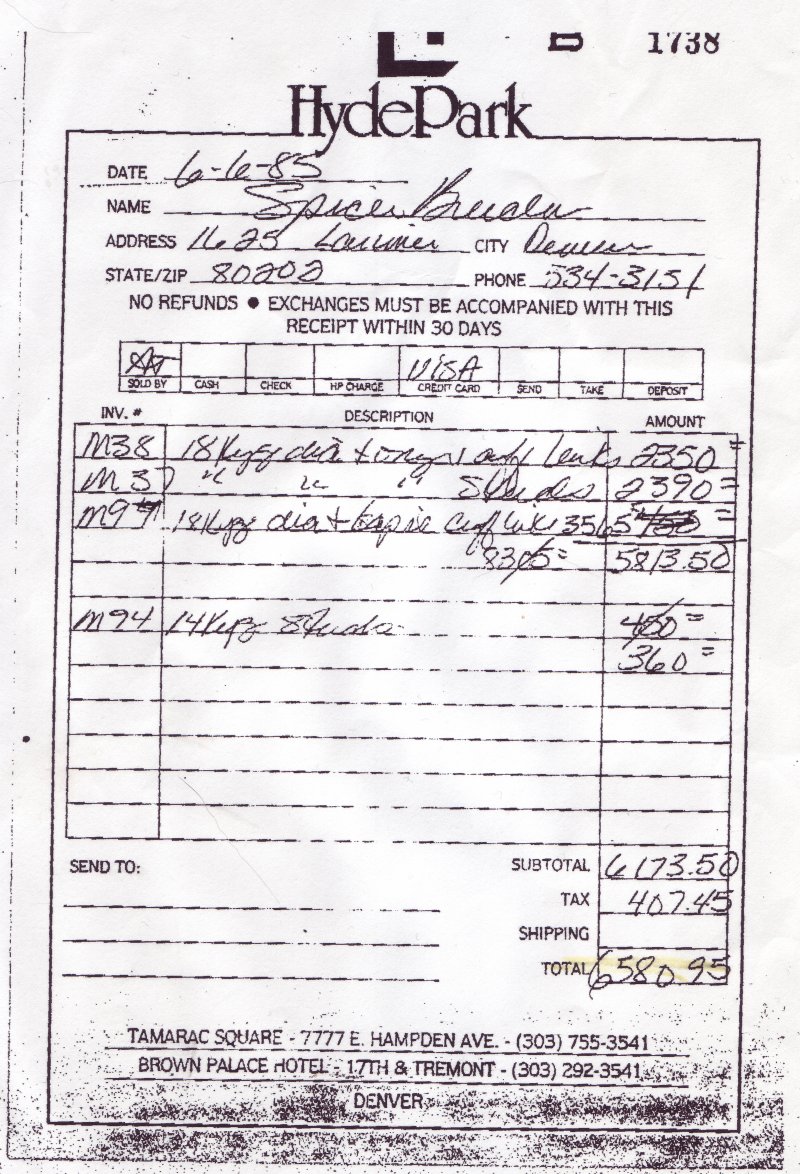 B 1738
HydePark
DATE 6-6-85
NAME Spicer Breeden
ADDRESS 1625 Larimer CITY Denver
STATE/ZIP 80202 PHONE 534-3151
NO REFUNDS ● EXCHANGES MUST BE ACCOMPANIED WITH THIS
RECEIPT WITHIN 30 DAYS
VISA
SOLD BY CASH CHECK HP CHARGE CREDIT CARD SEND TAKE DEPOSIT
INV. # DESCRIPTION AMOUNT
M38 18Kyg dia + onyx cuff links 2350=
M37 " " " Studs 2390=
18Kyg dia + cuff links 3565
8305= 5813.50
M94 14Kyg Studs 450=
360=
SEND TO: SUBTOTAL 6173.50
TAX 407.45
SHIPPING
TOTAL 6580.95
TAMARAC SQUARE - 7777 E. HAMPDEN AVE. - (303) 755-3541
BROWN PALACE HOTEL - 17TH & TREMONT - (303) 292-3541
DENVER